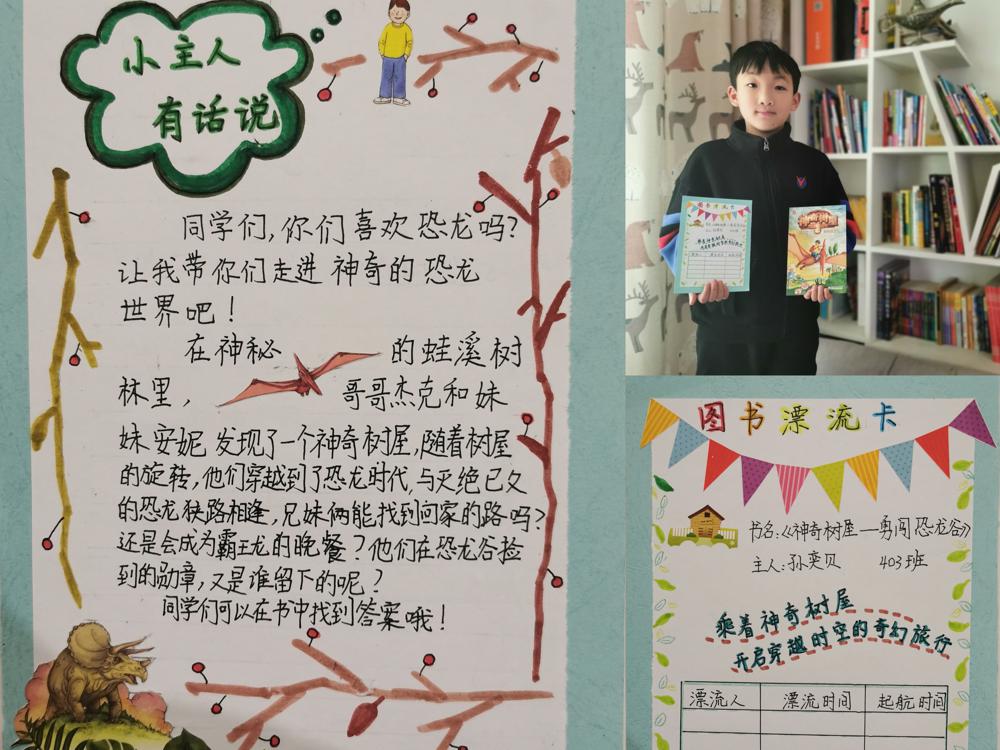 小主人
有话说
同学们,你们喜欢恐龙吗?
让我带你们走进神奇的恐龙
世界吧!
在神秘 的蛙溪树
林里, 哥哥杰克和妹
妹安妮发现了一个神奇树屋,随着树屋
的旋转,他们穿越到了恐龙时代,与灭绝已久
的恐龙狭路相逢,兄妹俩能找到回家的路吗?
还是会成为霸王龙的晚餐?他们在恐龙谷捡
到的勋章,又是谁留下的呢?
同学们可以在书中找到答案哦!
图书漂流卡
神奇树屋
乘着神奇树屋
开启穿越时空的奇幻旅行
图书漂流卡
书名:《神奇树屋—勇闯恐龙谷》
主人:孙奕贝 403班
乘着神奇树屋
开启穿越时空的奇幻旅行
漂流人 漂流时间 起航时间